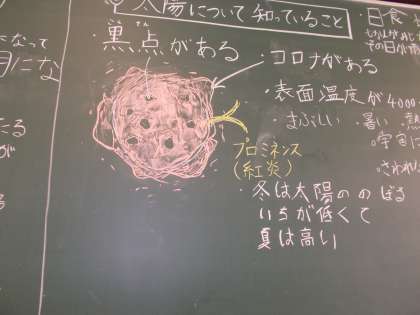 太陽について知っていること
・黒点がある
・コロナがある
・表面温度が4000
・まぶしい 暑い
プロミネンス
(紅炎)
・冬は太陽ののぼる
いちが低くて
夏は高い
・日食
宇宙に
さわれ
なって
月にな
たる
が